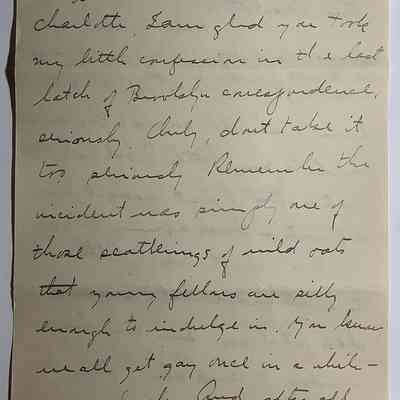 Charlotte, I am glad you took
my little confession in the last
batch of Brooklyn correspondence,
seriously. Only, dont take it
too seriously Remember the
incident was simply one of
those scatterings of wild oats
that young fellows are silly
enough to indulge in. You know
we all get gay once in a while —
And after all